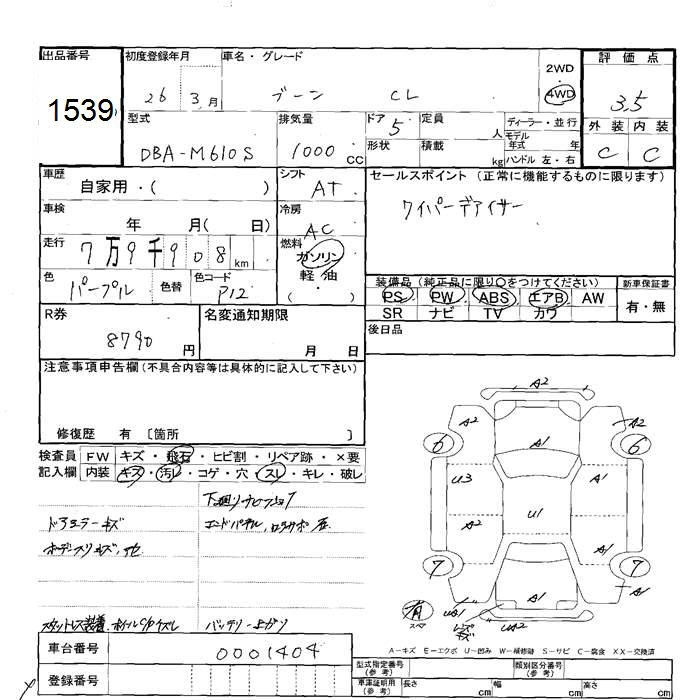 出品番号 初度登録年月 車名・グレード 2WD ・ 4WD 評価点
1539 26 3月 ブーン CL 3.5
型式 排気量 ドア 定員 人 ディーラー・並行 外装 内装
DBA-M610S 1000CC 5 形状 積載 kg モデル年式 年 ハンドル 左・右 C C
車歴 シフト セールスポイント(正常に機能するものに限ります)
自家用・( ) AT ワイパーデアイサー
車検 年 月( 日) 冷房 AC
走行 7万9千908km 燃料 ガソリン 軽油 ( ・ )
色 パープル 色替 色コード P12
装備品(純正品に限り○をつけてください) 新車保証書
PS PW ABS エアB AW 有・無
SR ナビ TV カワ
R券 8790円 名変通知期限 月 日 後日品
注意事項申告欄(不具合内容等は具体的に記入して下さい)
修復歴 有 〔箇所 〕
検査員 FW キズ・飛石・ヒビ割・リペア跡・×要
記入欄 内装 キズ・汚レ・コゲ・穴・スレ・キレ・破レ
ドアミラーキズ
スタットレス装着 バッテリー上がり
A2
A2 A2
6 A1 6
U3 A1
A2 U1 A1
7 7
A1 A1
有 スペア UA1 UA2
A-キズ E-エクボ U-凹み W-補修跡 S-サビ C-腐食 XX-交換済
車台番号 0001404 型式指定番号(参考) 類別区分番号(参考)
登録番号 車庫証明用(参考) 長さ cm 幅 cm 高さ cm